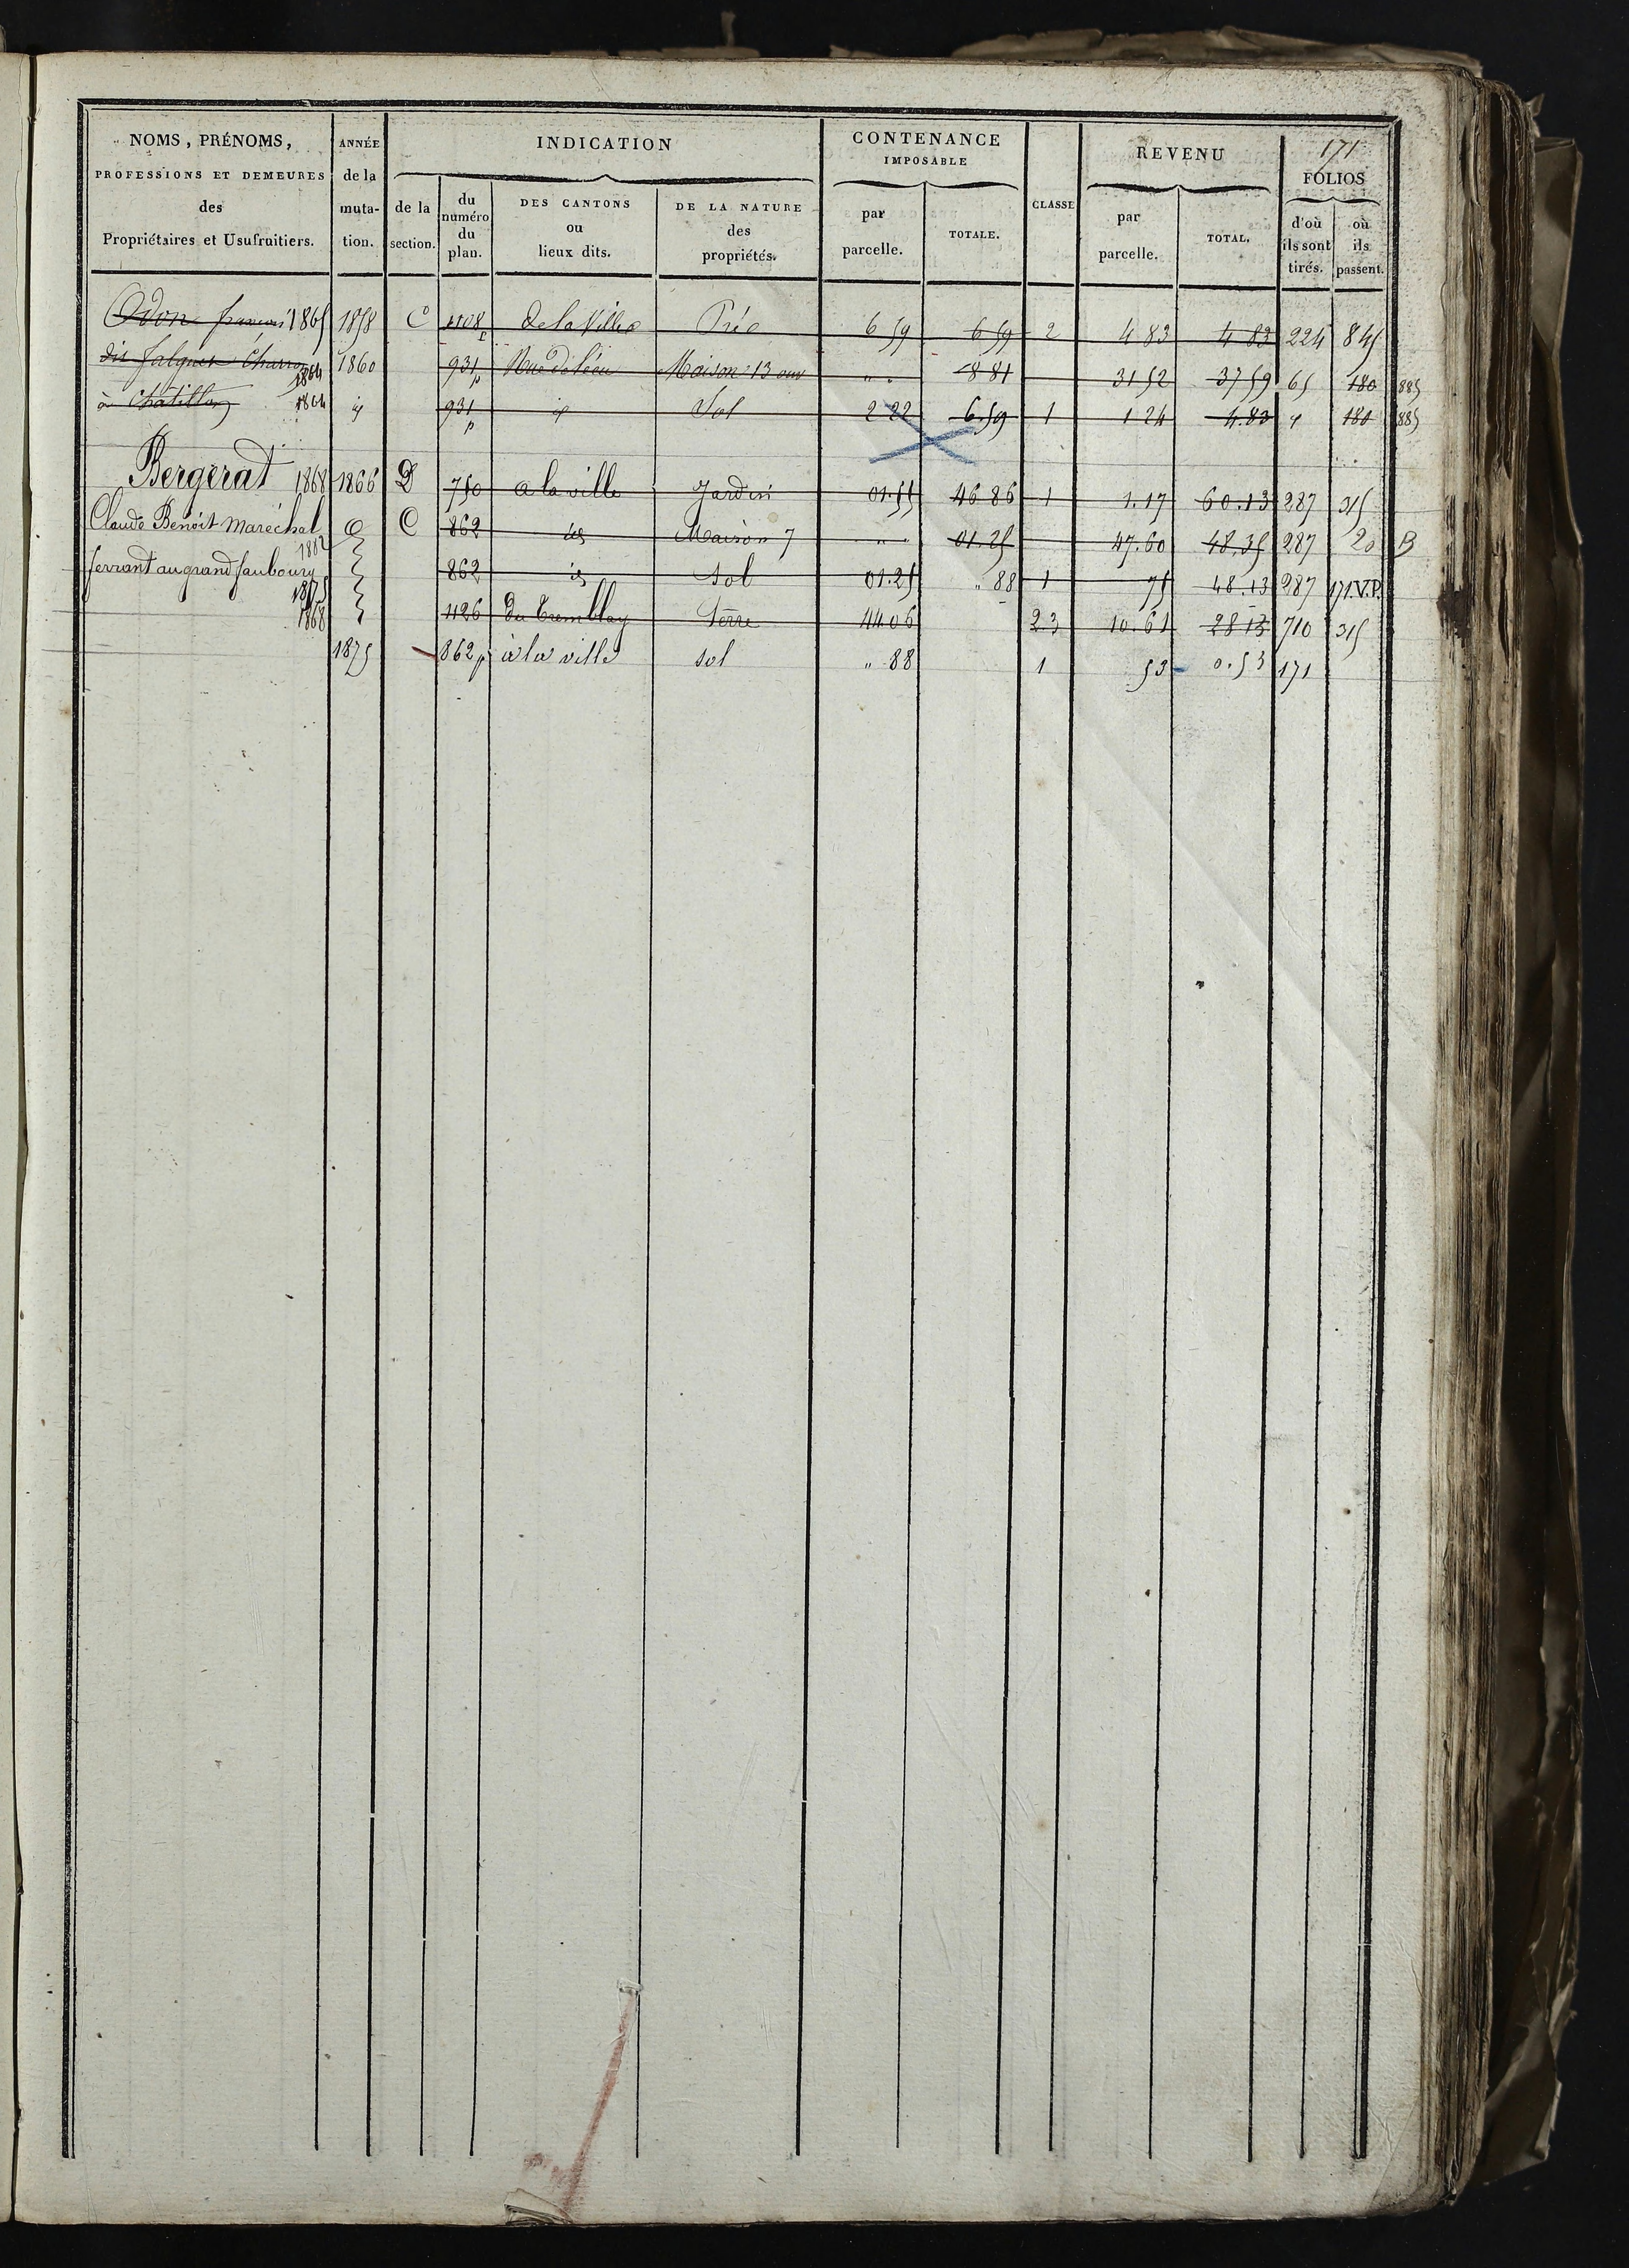 171
NOMS, PRÉNOMS, PROFESSIONS ET DEMEURES des Propriétaires et Usufruitiers.
ANNÉE de la muta- tion.
INDICATION
de la section.
du numéro du plan.
DES CANTONS ou lieux dits.
DE LA NATURE des propriétés.
CONTENANCE IMPOSABLE
par parcelle.
TOTALE.
CLASSE
REVENU
par parcelle.
TOTAL.
FOLIOS
d'où ils sont tirés.
où ils passent.
Odon françois 1865 1858 C 1108p De la Ville Pré 6 59 6 59 2 4 83 4 83 224 845
dit Charron 1864 1860 931p Maison 13 ouv " " 8 81 31 52 37 59 65 180 885
à Châtillon 1864 id 931p id Sol 2 22 6.59 1 1 24 4.83 180 885
Bergerat 1868 1866 D 750 a la ville Jardin 01.55 46 86 1 1.17 60.13 287 315
Claude Benoit Maréchal 1882 C 862 id Maison 7 " " 01.25 47.60 48.35 287 20 B
ferrant au grand faubourg 1875 862 id Sol 01.25 " 88 1 75 48.13 287 171.V.P.
1868 1126 du Tremblay Terre 44 06 2 3 10.61 28 13 710 315
1875 862p à la ville sol " 88 1 53 0.53 171